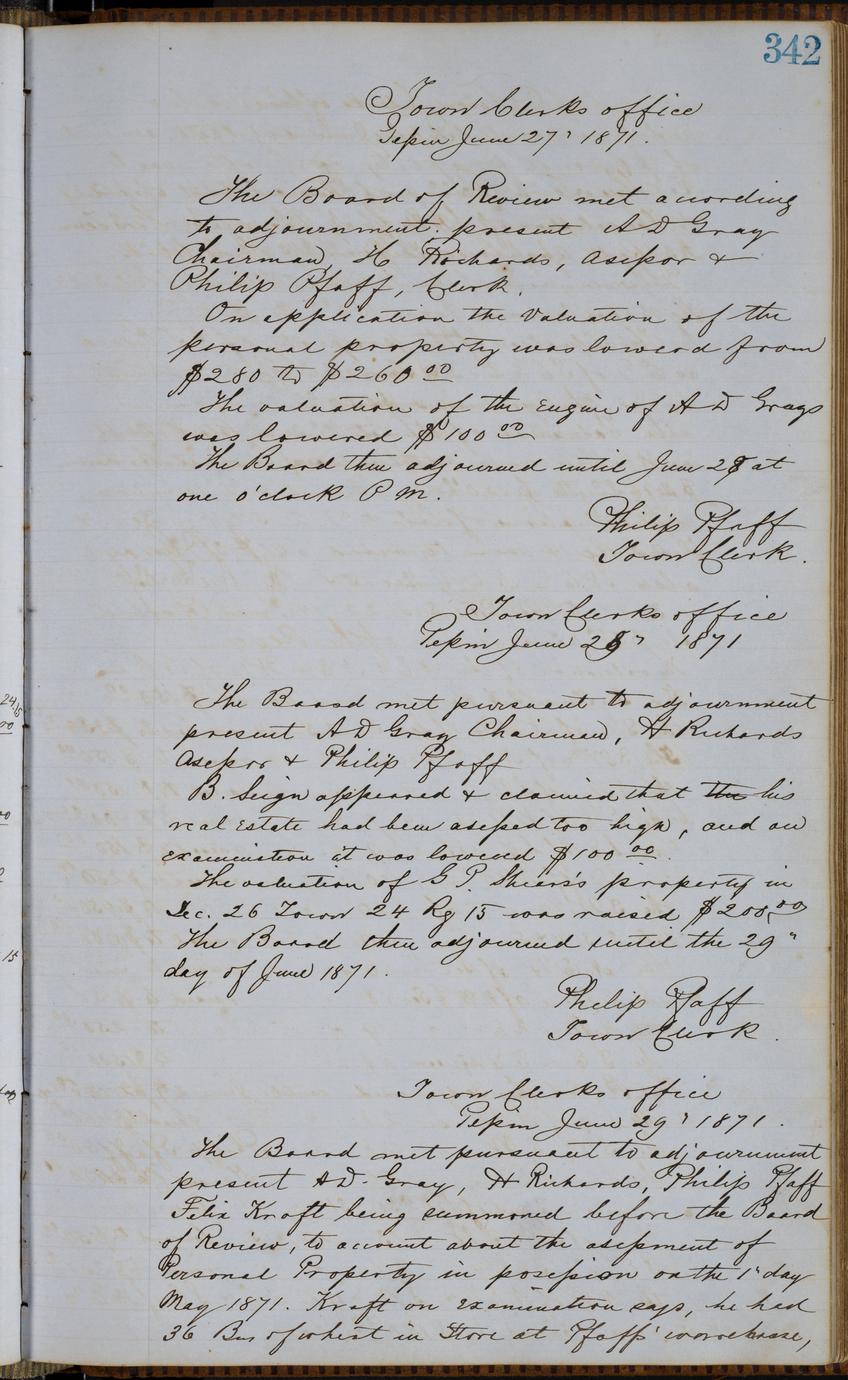 342
Town Clerks office
Pepin June 27" 1871.
The Board of Review met acording
to adjournment. present A D Gray
Chairman, H Richards, Assessor &
Philip Pfaff, Clerk.
On application the Valuation of the
personal property was lowerd from
$280 to $260 00
The valuation of the Engine of A D Grays
was lowered $100 00
The Board then adjourned until June 28 at
one o'clock P M.
Philip Pfaff
Town Clerk.
Town Clerks office
Pepin June 28" 1871
The Board met pursuant to adjournment
present A D Gray Chairman, H Richards
Assessor & Philip Pfaff
B. Seign appeared & claimed that the his
real Estate had been assessed too high, and on
examination it was lowered $100 00.
The valuation of G P. Sheers's property in
Sec. 26 Town 24 Rg 15 was raised $200,00
The Board then adjourned until the 29"
day of June 1871.
Philip Pfaff
Town Clerk.
Town Clerks office
Pepin June 29" 1871.
The Board met pursuant to adjournment
present A D. Gray, H Richards, Philip Pfaff
Felix Kraft being summoned before the Board
of Review, to account about the assessment of
Personal Property in possession on the 1" day
May 1871. Kraft on Examination says, he had
36 Bus of wheat in Store at Pfaffs' warehouse,